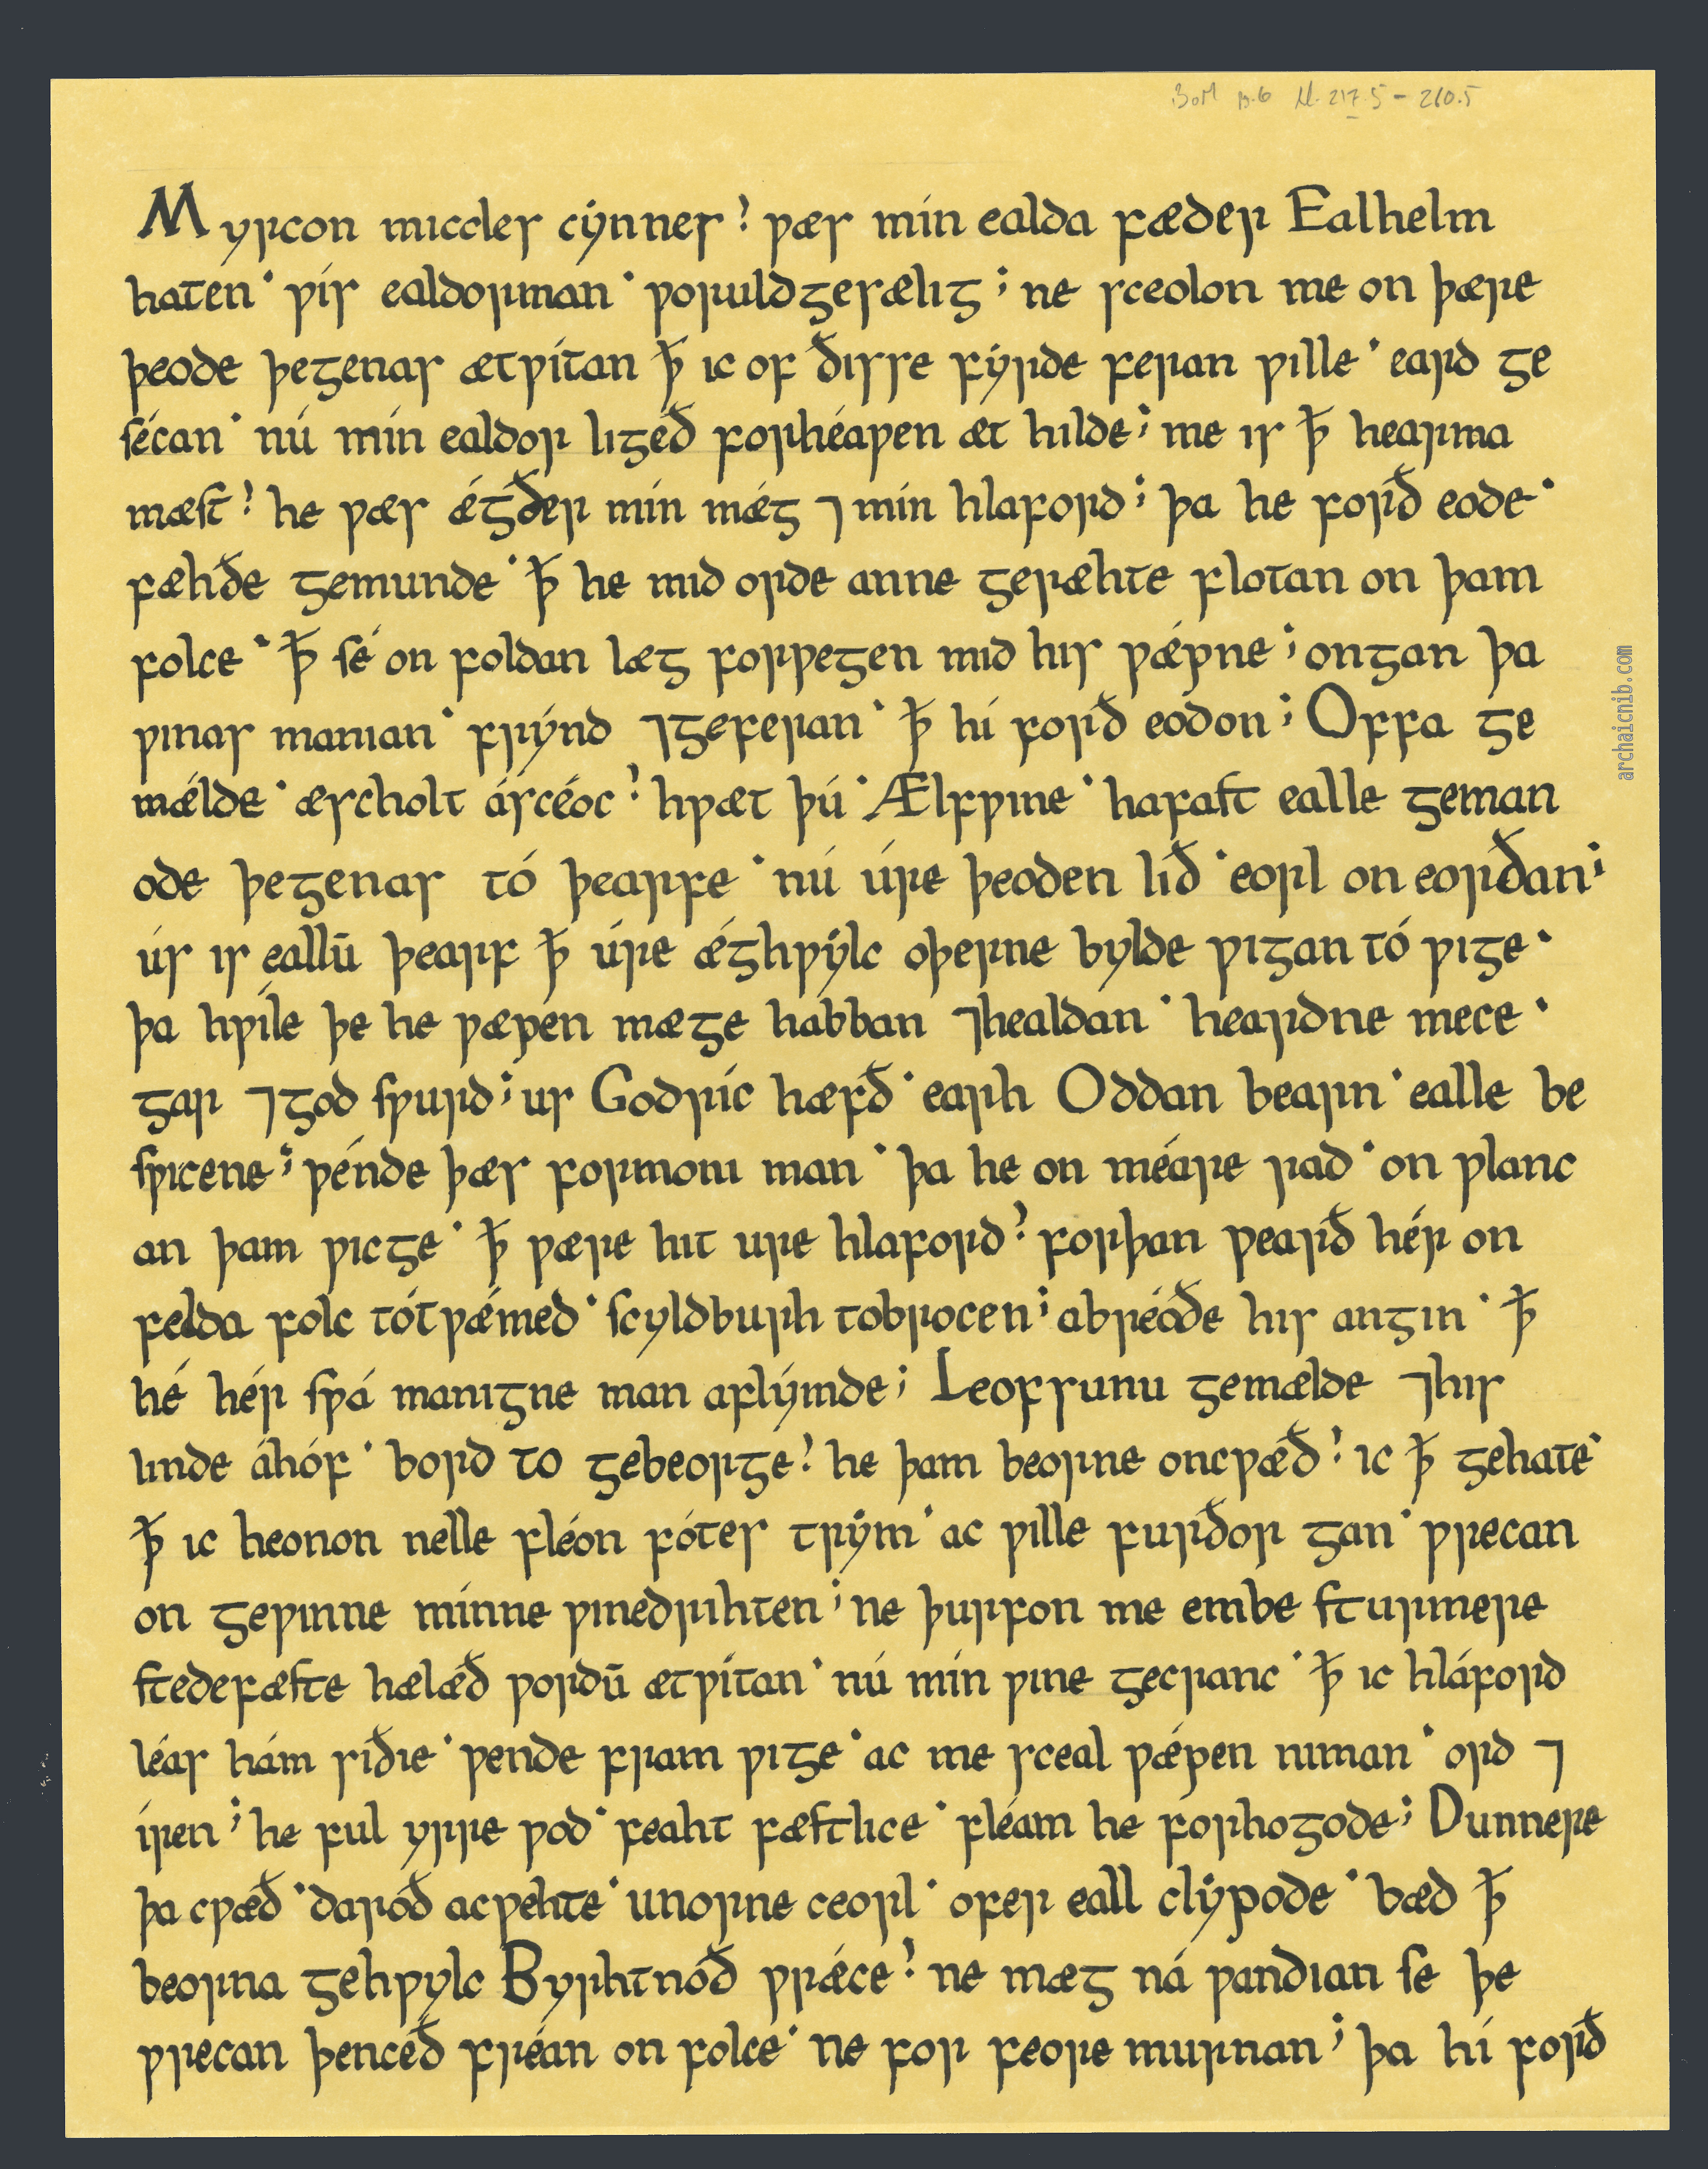 BoM p.6 ll. 217.5 – 260.5
Myrcon miccles cýnnes? ƿæs mín ealda fæder Ealhelm
haten· ƿís ealdorman· ƿoruldgesælig; ne sceolon me on þære
þeode þegenas ætƿítan ꝥ ic of ðisse fýrde feran ƿille· eard ge
sécan· nú mín ealdor ligeð forhéaƿen æt hilde; me is ꝥ hearma
mæst? he ƿæs ǽgðer mín mǽg ⁊ mín hlaford; þa he forð eode·
fæhðe gemunde· ꝥ he mid orde anne geræhte flotan on þam
folce· ꝥ sé on foldan læg forƿegen mid his ƿǽpne; ongan þa
ƿinas manian· frýnd ⁊geferan· ꝥ hí forð eodon; Offa ge
mǽlde· æscholt áscéoc? hƿæt þú· Ælfƿine· hafast ealle geman
ode þegenas tó þearfe· nú úre þeoden líð· eorl on eorðan;
ús is eallū þearf ꝥ úre ǽghƿýlc oþerne bylde ƿigan tó ƿige·
þa hƿíle þe he ƿæpen mæge habban ⁊healdan· heardne mece·
gar ⁊god sƿurd; us Godríc hæfð· earh Oddan bearn· ealle be
sƿicene; ƿénde þæs formoni man· þa he on méare rad· on ƿlanc
an þam ƿicge· ꝥ ƿære hit ure hlaford? forþan ƿearð hér on
felda folc tótƿǽmed· scyldburh tobrocen; abréoðe his angin· ꝥ
hé hér sƿá manigne man aflýmde; Leofsunu gemælde ⁊his
linde áhóf· bord to gebeorge? he þam beorne oncƿæð? ic ꝥ gehate·
ꝥ ic heonon nelle fléon fótes trým· ac ƿille furðor gan· ƿrecan
on geƿinne mínne ƿinedrihten; ne þurfon me embe sturmere
stedefæste hælæð ƿordū ætƿítan· nú mín ƿine gecranc· ꝥ ic hláford
léas hám siðie· ƿende fram ƿige· ac me sceal ƿǽpen niman· ord ⁊
íren; he ful yrre ƿod· feaht fæstlice· fléam he forhogode; Dunnere
þa cƿæð· daróð acƿehte· unorne ceorl· ofer eall clýpode· bæd ꝥ
beorna gehƿylc Byrhtnóð ƿrǽce? ne mæg ná ƿandian se þe
ƿrecan þenceð fréan on folce· ne for feore murnan; þa hí forð
archaicnib.com